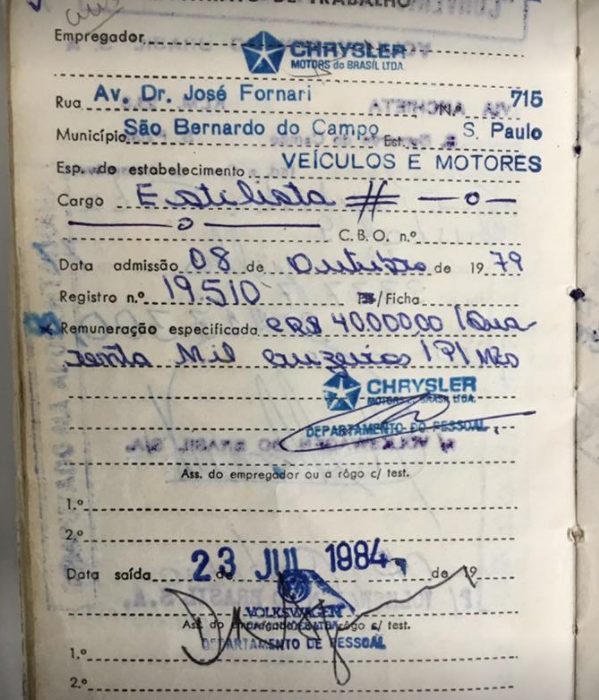 DE TRABALHO
Empregador
CHRYSLER
MOTORS do BRASIL LTDA.
Rua Av. Dr. José Fornari 715
Município São Bernardo do Campo Est. S. Paulo
Esp. do estabelecimento VEÍCULOS E MOTORES
Cargo Estilista # —o—
—o—
C.B.O. n.º
Data admissão 08 de Outubro de 1979
Registro n.º 19.510 /Ficha
Remuneração especificada CR$ 40.000,00 (Qua-
renta Mil cruzeiros) P/ Mês
CHRYSLER
MOTORS do BRASIL LTDA.
DEPARTAMENTO DO PESSOAL
Ass. do empregador ou a rôgo c/ test.
1.º
2.º
Data saída 23 JUL 1984 de 19
VOLKSWAGEN
Ass. do empregador rôgo c/ test.
DEPARTAMENTO DE PESSOAL
1.º
2.º